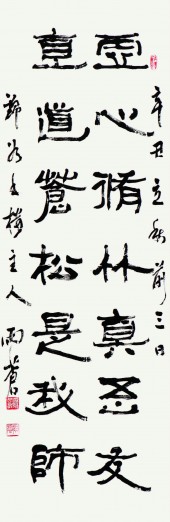 辛丑立秋前三日
虚心脩竹真吾友
直道蒼松是我師
主人雨蒼